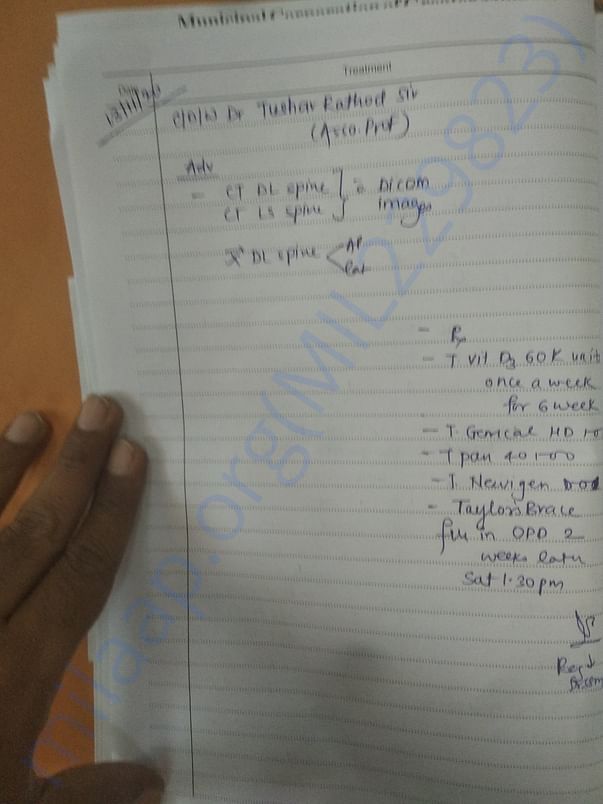 Municipal Corporation of Greater
Treatment
Date
13/11/20
C/D/W Dr Tushar Rathod Sir
(Asco. Prof)
Adv
- CT DL spine ] c̄ Dicom
CT LS spine ] images
X^r DL spine < AP
Lat
- Rx
- T. vit D3 60K unit
once a week
for 6 week
- T. Gemcal HD 1-0
- T pan 40 1-0-0
- T. Newigen 0-0-1
- Taylors Brace
f/u in OPD 2
weeks later
Sat 1.30 pm
Dicom
milaap.org(MIL229823)